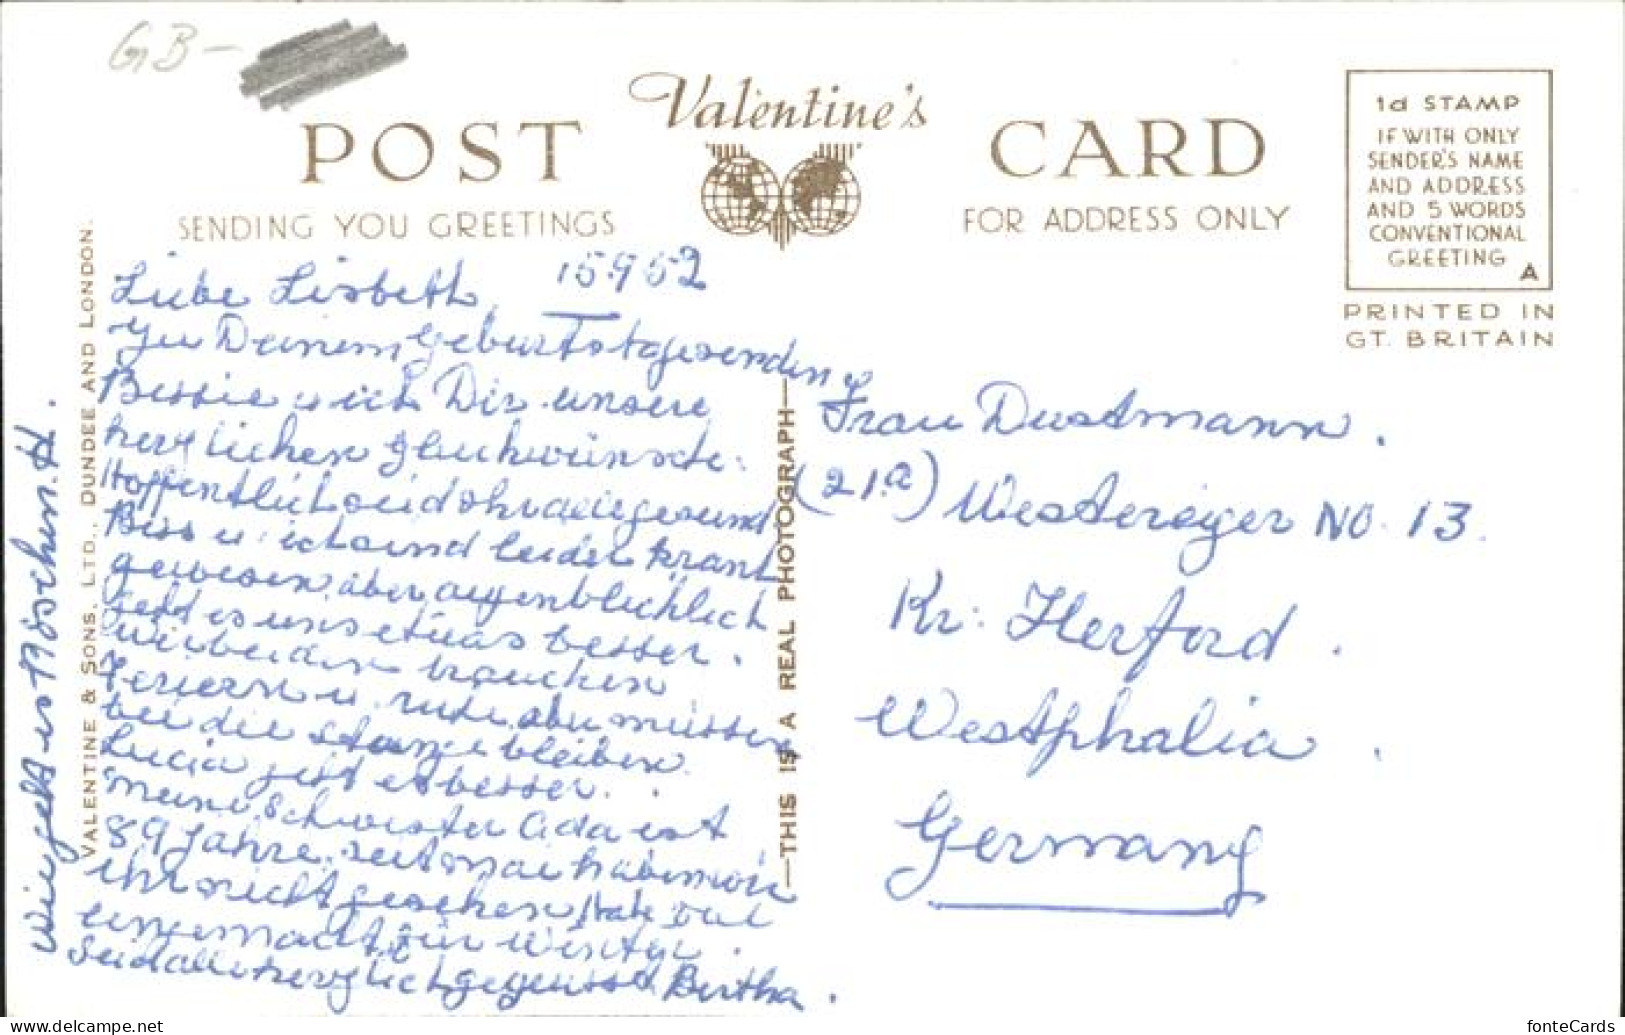 GB -
Valentine's
POST CARD
SENDING YOU GREETINGS
FOR ADDRESS ONLY
1d STAMP
IF WITH ONLY
SENDER'S NAME
AND ADDRESS
AND 5 WORDS
CONVENTIONAL
GREETING
A
PRINTED IN
GT. BRITAIN
VALENTINE & SONS, LTD., DUNDEE AND LONDON.
THIS IS A REAL PHOTOGRAPH
15.9.52
Liebe Lisbeth,
Zu Deinem Geburtstage senden
Bessie u ich Dir unsere
herzlichen Glückwünsche.
Hoffentlich seid Ihr alle gesund
Biss u. ich sind leider krank
gewesen, aber augenblicklich
geht es uns etwas besser.
Wir beiden brauchen
Ferien u. Ruhe, aber müssen
bei die Stange bleiben.
Lucia geht es besser.
Meine Schwester Ada ist
89 Jahre, seit Mai haben wir
ihr nicht gesehen. Habe viel
eingemacht für Winter.
Seid alle herzlich gegrüsst Bertha.
Wie geht es Böschen. H.
Frau Dustmann.
(21a) Westereger No. 13.
Kr. Herford.
Westphalia.
Germany
fonteCards
www.delcampe.net